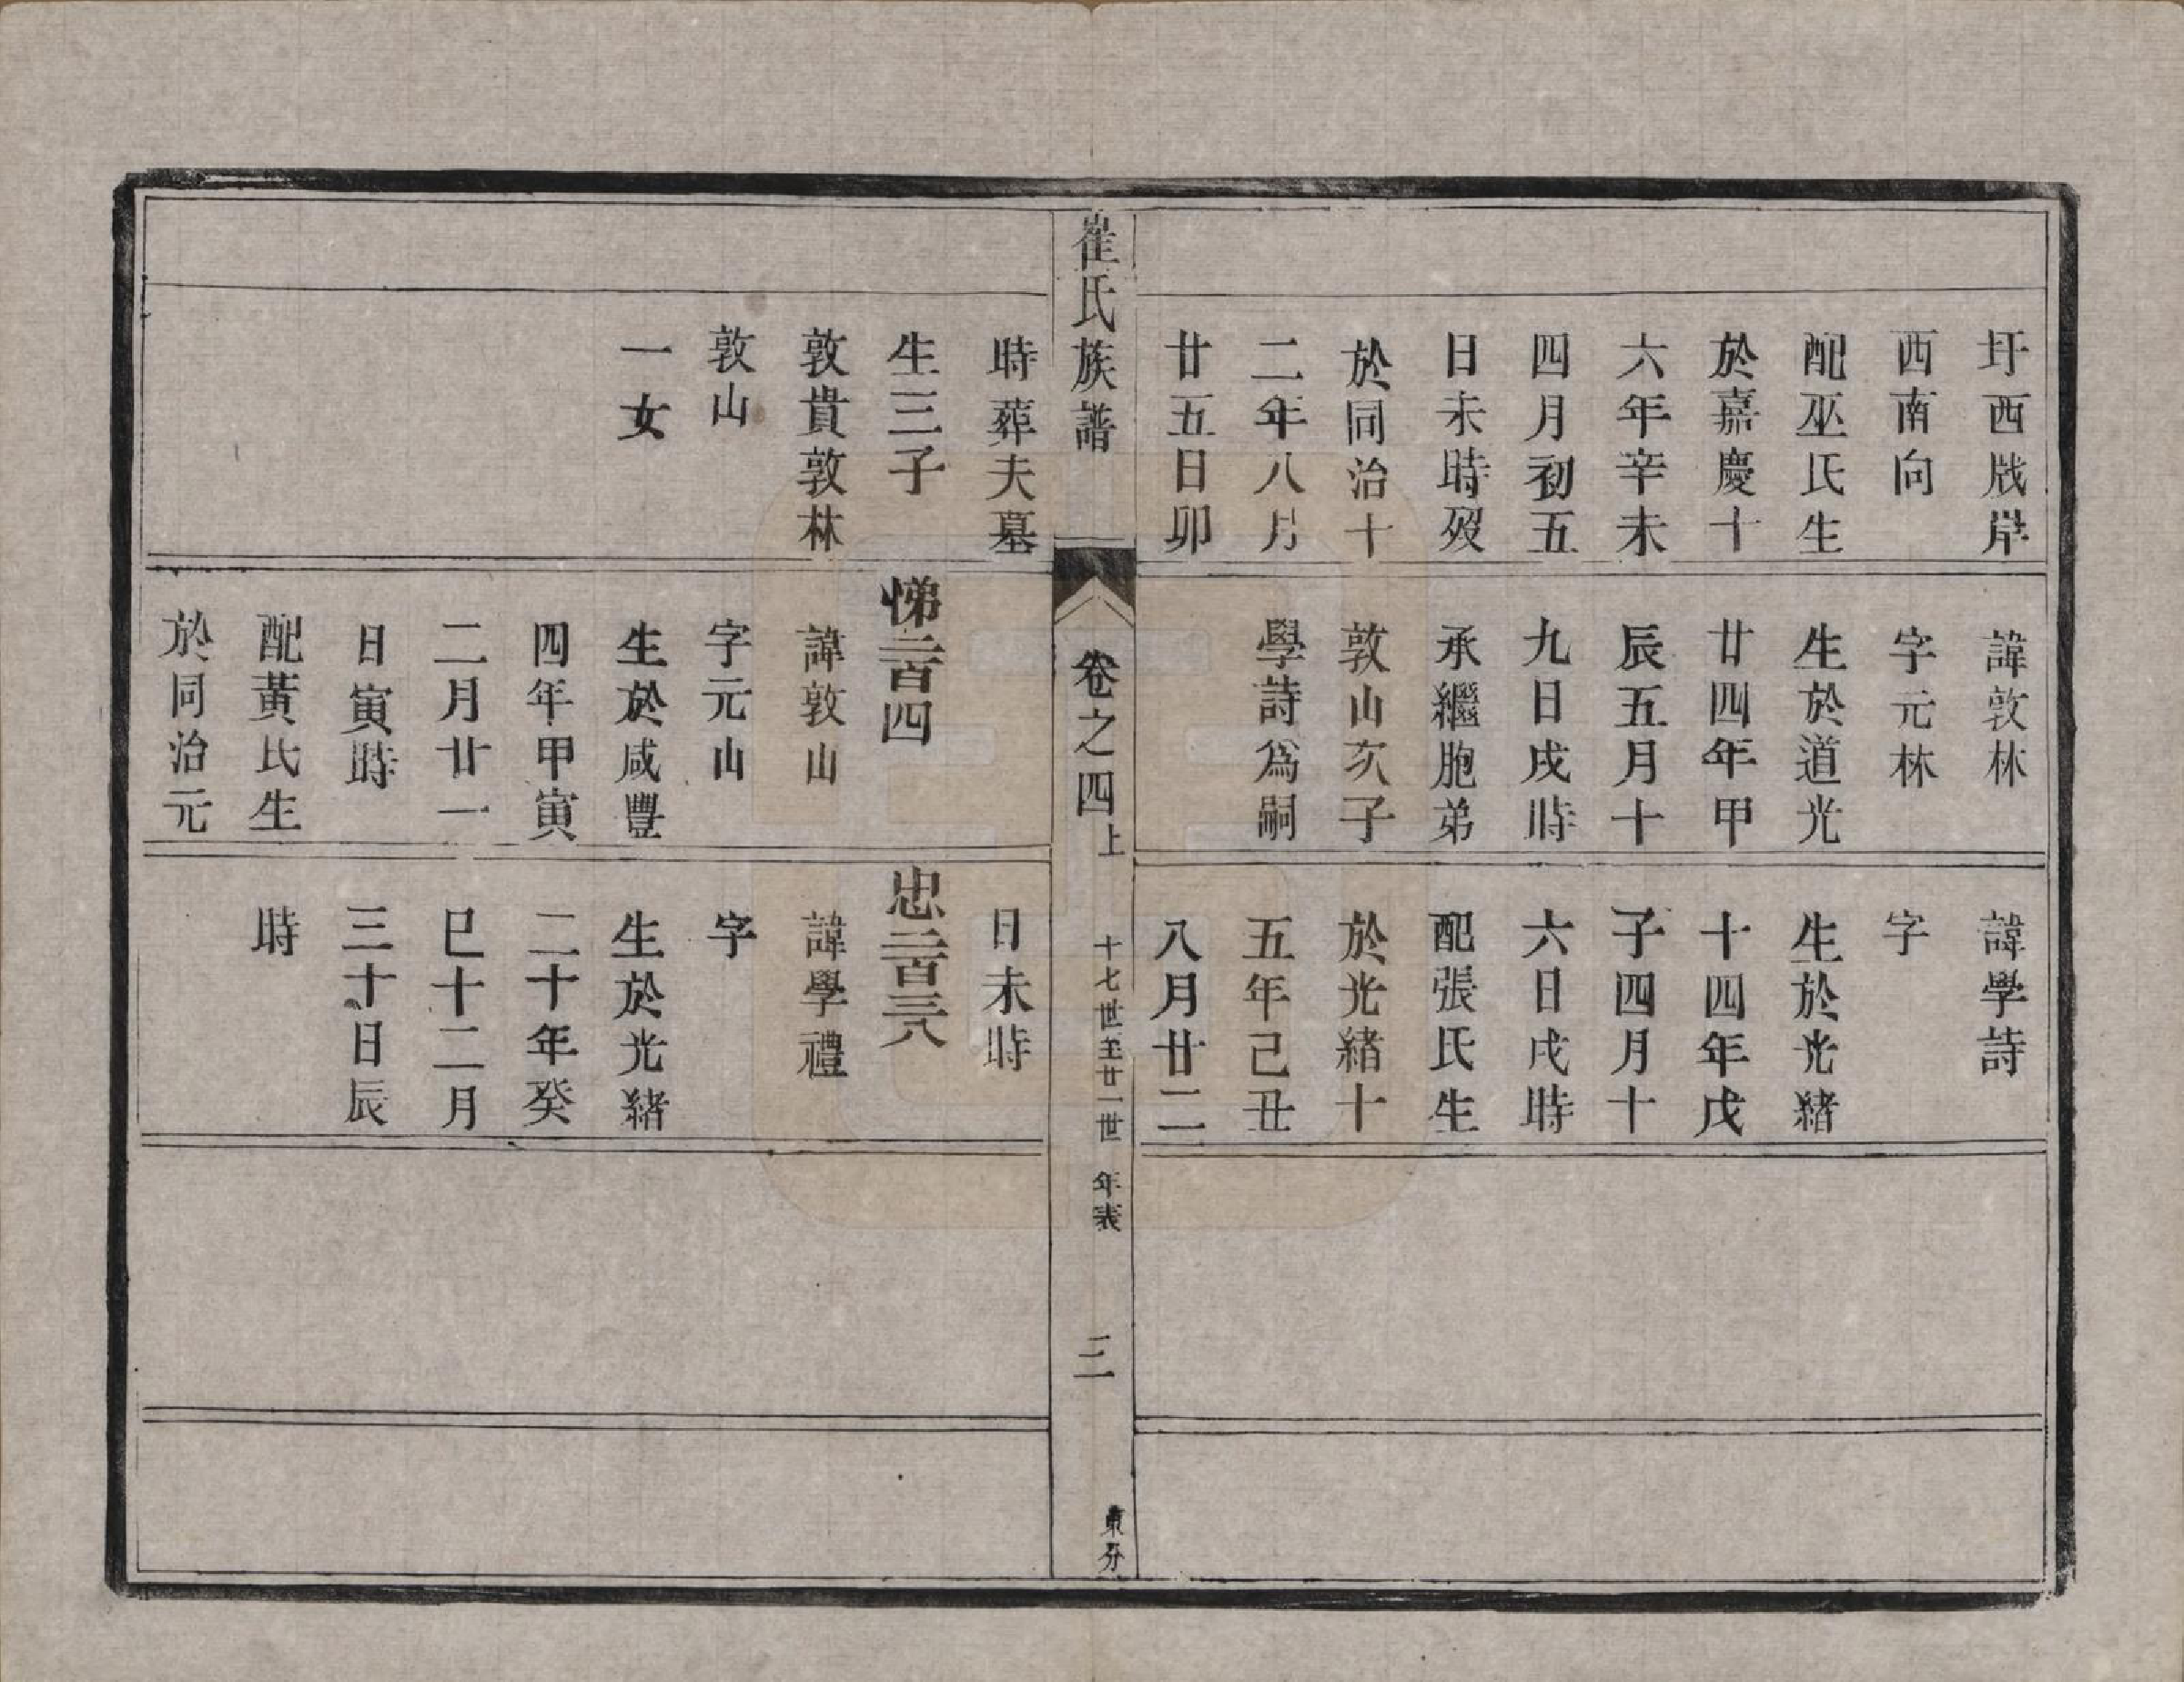 圩西戙岸
西南向
配巫氏生
於嘉慶十
六年辛未
四月初五
日未時歿
於同治十
二年八月
廿五日卯
諱敦林
字元林
生於道光
廿四年甲
辰五月十
九日戌時
承繼胞弟
敦山次子
學詩為嗣
諱學詩
字
生於光緒
十四年戊
子四月十
六日戌時
配張氏生
於光緒十
五年己丑
八月廿二
崔氏族譜
卷之四上
十七世至廿一世
年表
二
東分
時葬夫墓
生三子
敦貴敦林
敦山
一女
悌二百四
諱敦山
字元山
生於咸豐
四年甲寅
二月廿一
日寅時
配黃氏生
於同治元
日未時
忠二百三八
諱學禮
字
生於光緒
二十年癸
巳十二月
三十日辰
時